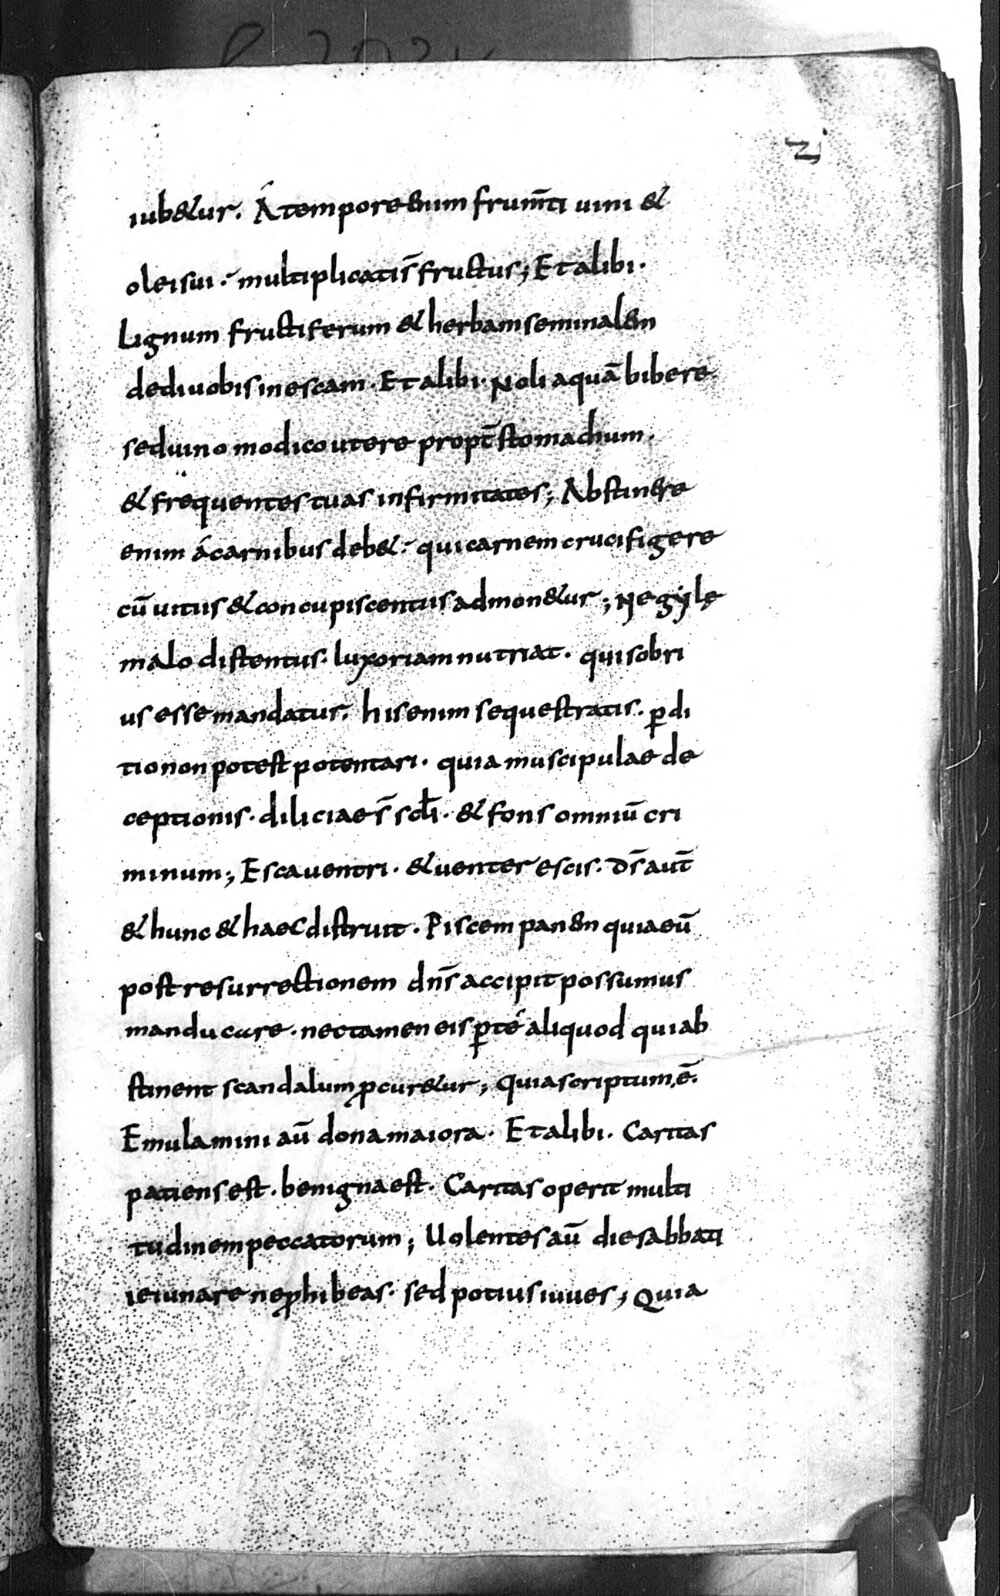 iub&ur. Á tempore enim frum̄ti uini &
olei sui multiplicati s̄ fructus; Et alibi.
Lignum fructiferum & herbam seminalem
dedi uobis in escam. Et alibi. Noli aquā bibere.
sed uino modico utere propt̄ stomachum.
& frequentes tuas infirmitates; Abstinere
enim á carnibus deb&. qui carnem crucifigere
cū uitiis & concupiscentiis admon&ur; Ne gylę
malo distentus. luxoriam nutriat. qui sobri
us esse mandatur. his enim sequestratis. ꝑdi
tio non potest potentari. quia muscipulae de
ceptionis. diliciae s̄ scłi. & fons omniū cri
minum; Esca uentri. & uenter escis. ds̄ aut̄
& hunc & haec distruit. Piscem panem quia eū
post resurrectionem dns̄ accipit possumus
manducare. nec tamen eis ꝑ té aliquod qui ab
stinent scandalum ꝓcur&ur; quia scriptum ē.
Emulamini aū dona maiora. Et alibi. Caritas
patiens est. benigna est. Caritas operit multi
tudinem peccatorum; Uolentes aū die sabbati
ieiunare ne ꝓhibeas. sed potius iuues; Quia